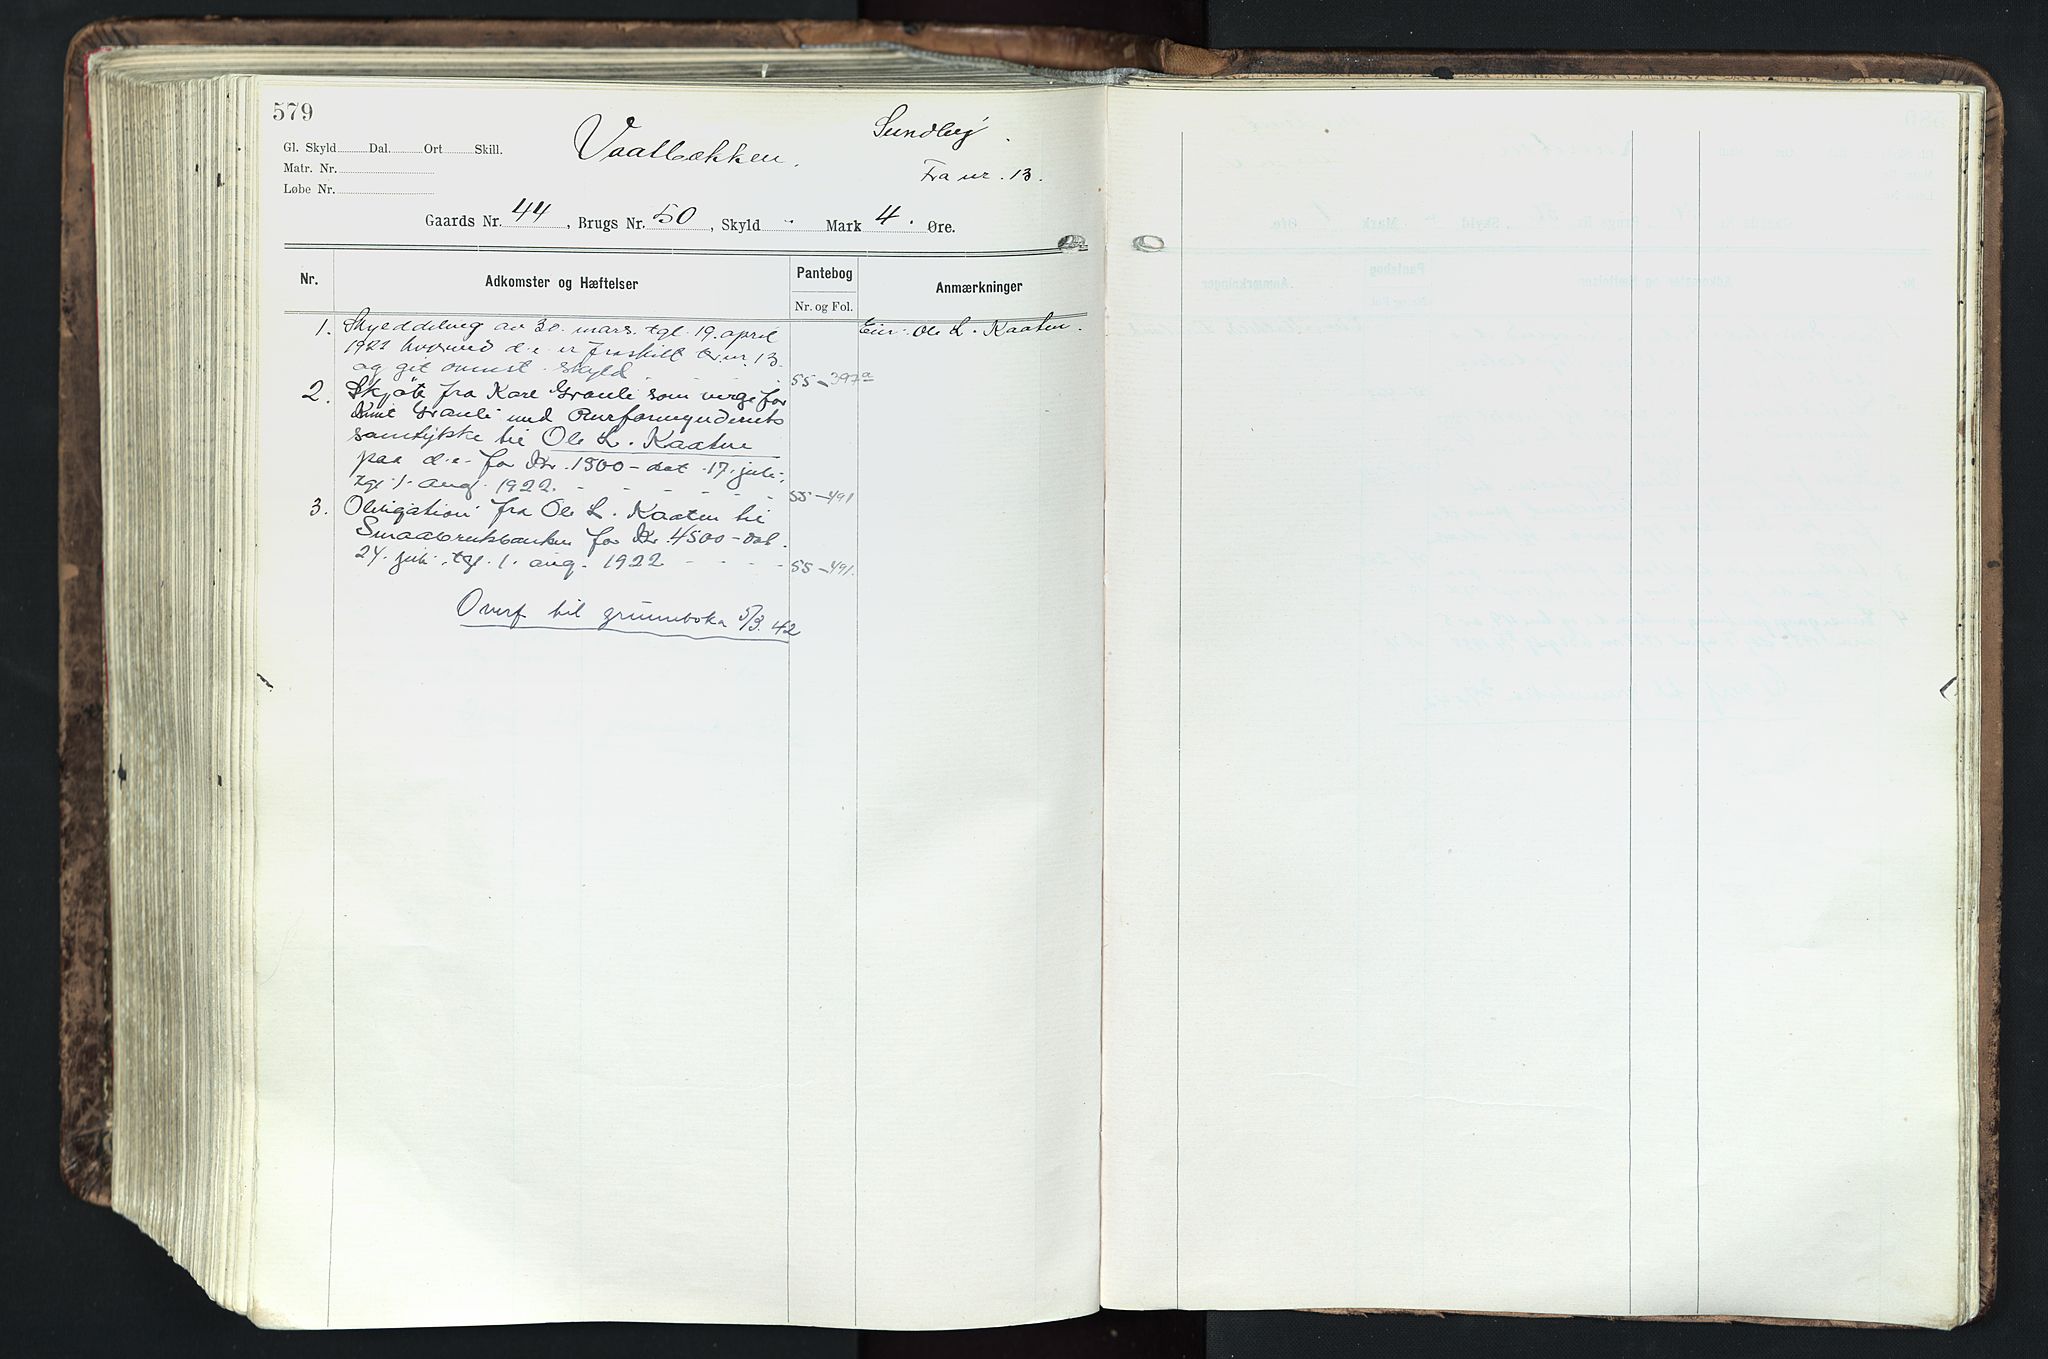 579
Gl. Skyld Dal. Ort Skill.
Matr. Nr.
Løbe Nr.
Vaatbækken.
Sundby.
Fra nr. 13.
Gaards Nr. 44, Brugs Nr. 50, Skyld " Mark 4. Øre.
Nr. Adkomster og Hæftelser Pantebog Anmærkninger
Nr. og Fol.
1. Skylddeling av 30. mars. tgl. 19. april Eier: Ole L. Kaaten.
1922 hvorved d.e. er fraskilt br.nr. 13
og git ovennt. skyld 55-397a
2. Skjøte fra Kare Granli som verge for
Knut Granli med Overformynderiets
samtykke til Ole L. Kaaten
paa d.e. for Kr. 1500- dat. 17. juli,
tgl. 1. aug. 1922. - - - - - 55-491
3. Obligation fra Ole L. Kaaten til
Smaabrukbanken for Kr. 4500- dat.
24. juli, tgl. 1. aug. 1922 - - - - 55-491.
Overf til grunnboka 5/3. 42